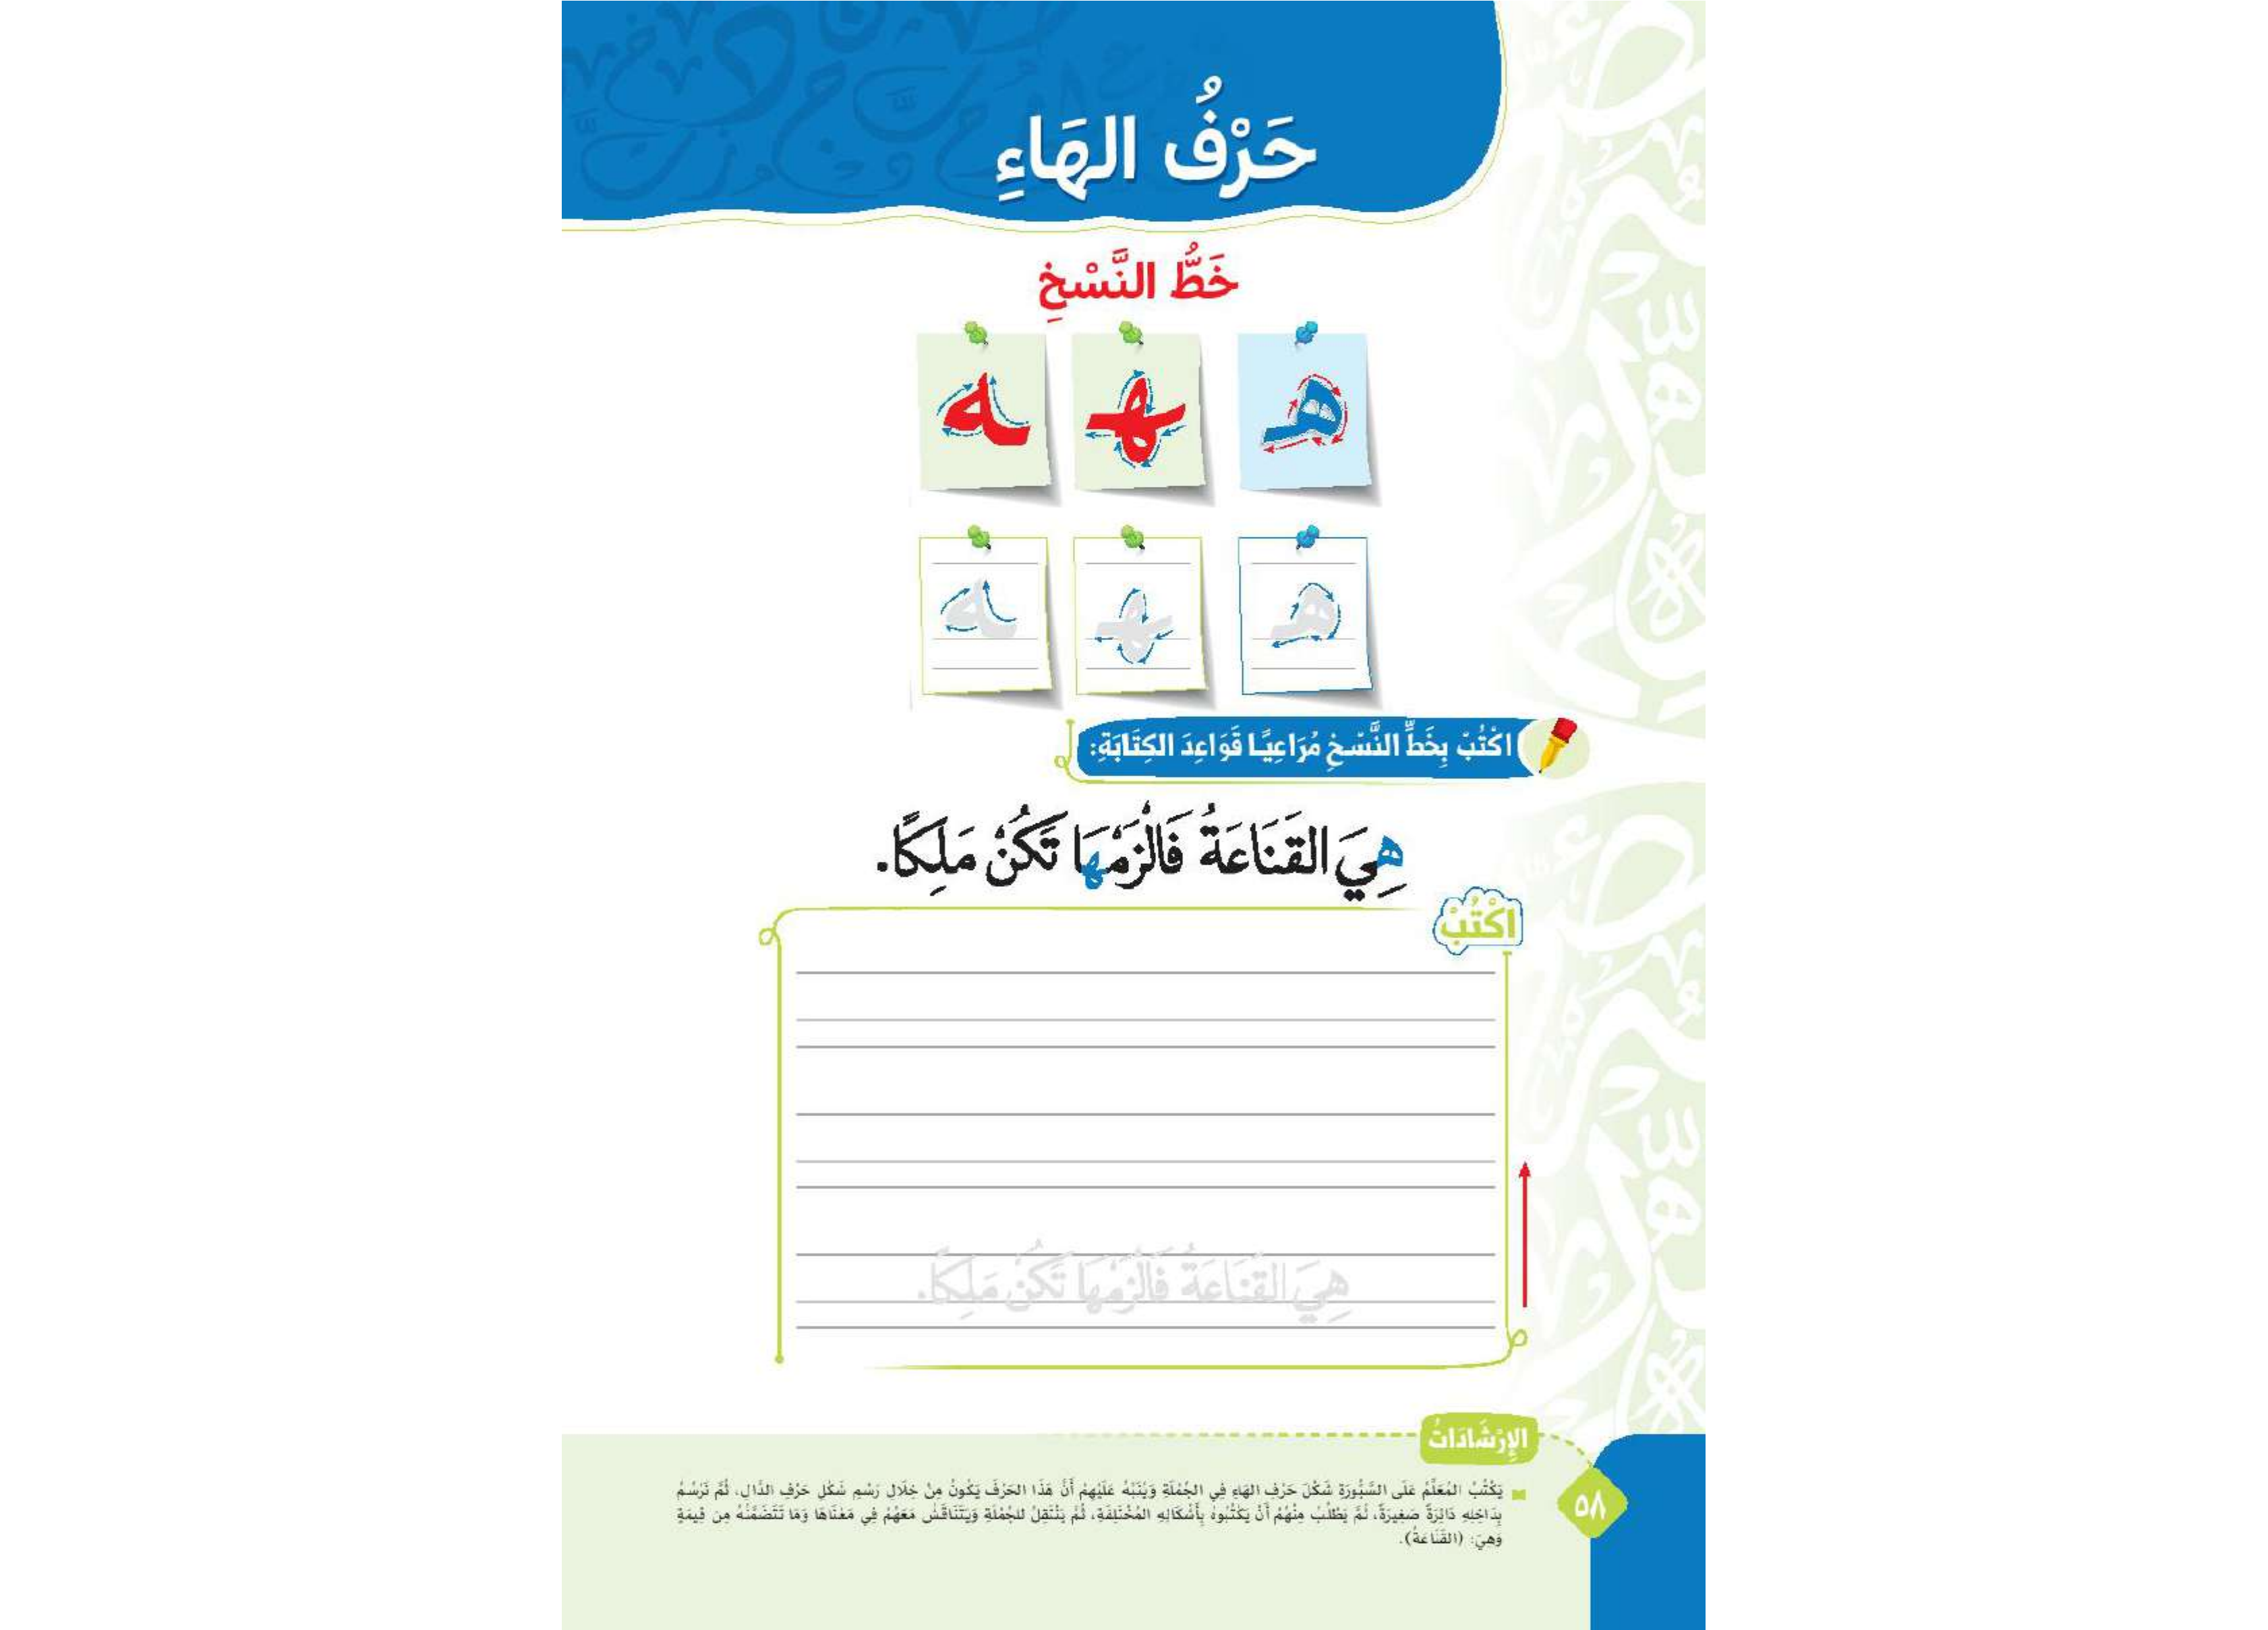 حَرْفُ الهَاءِ
خَطُّ النَّسْخِ
هـ ـهـ ـه
هـ ـهـ ـه
اكْتُبْ بِخَطِّ النَّسْخِ مُرَاعِيًا قَوَاعِدَ الكِتَابَةِ:
هِيَ القَنَاعَةُ فَالْزَمْهَا تَكُنْ مَلِكًا.
اكْتُبْ
هِيَ القَنَاعَةُ فَالْزَمْهَا تَكُنْ مَلِكًا.
الإِرْشَادَاتُ
يَكْتُبُ المُعَلِّمُ عَلَى السَّبُّورَةِ شَكْلَ حَرْفِ الهَاءِ فِي الجُمْلَةِ وَيُنَبِّهُ عَلَيْهِمْ أَنَّ هَذَا الحَرْفَ يَكُونُ مِنْ خِلَالِ رَسْمِ شَكْلِ حَرْفِ الدَّالِ، ثُمَّ نَرْسُمُ
بِدَاخِلِهِ دَائِرَةً صَغِيرَةً، ثُمَّ يَطْلُبُ مِنْهُمْ أَنْ يَكْتُبُوهُ بِأَشْكَالِهِ المُخْتَلِفَةِ، ثُمَّ يَنْتَقِلُ لِلجُمْلَةِ وَيَتَنَاقَشُ مَعَهُمْ فِي مَعْنَاهَا وَمَا تَتَضَمَّنُهُ مِن قِيمَةٍ
وَهِيَ: (القَنَاعَةُ).
٥٨